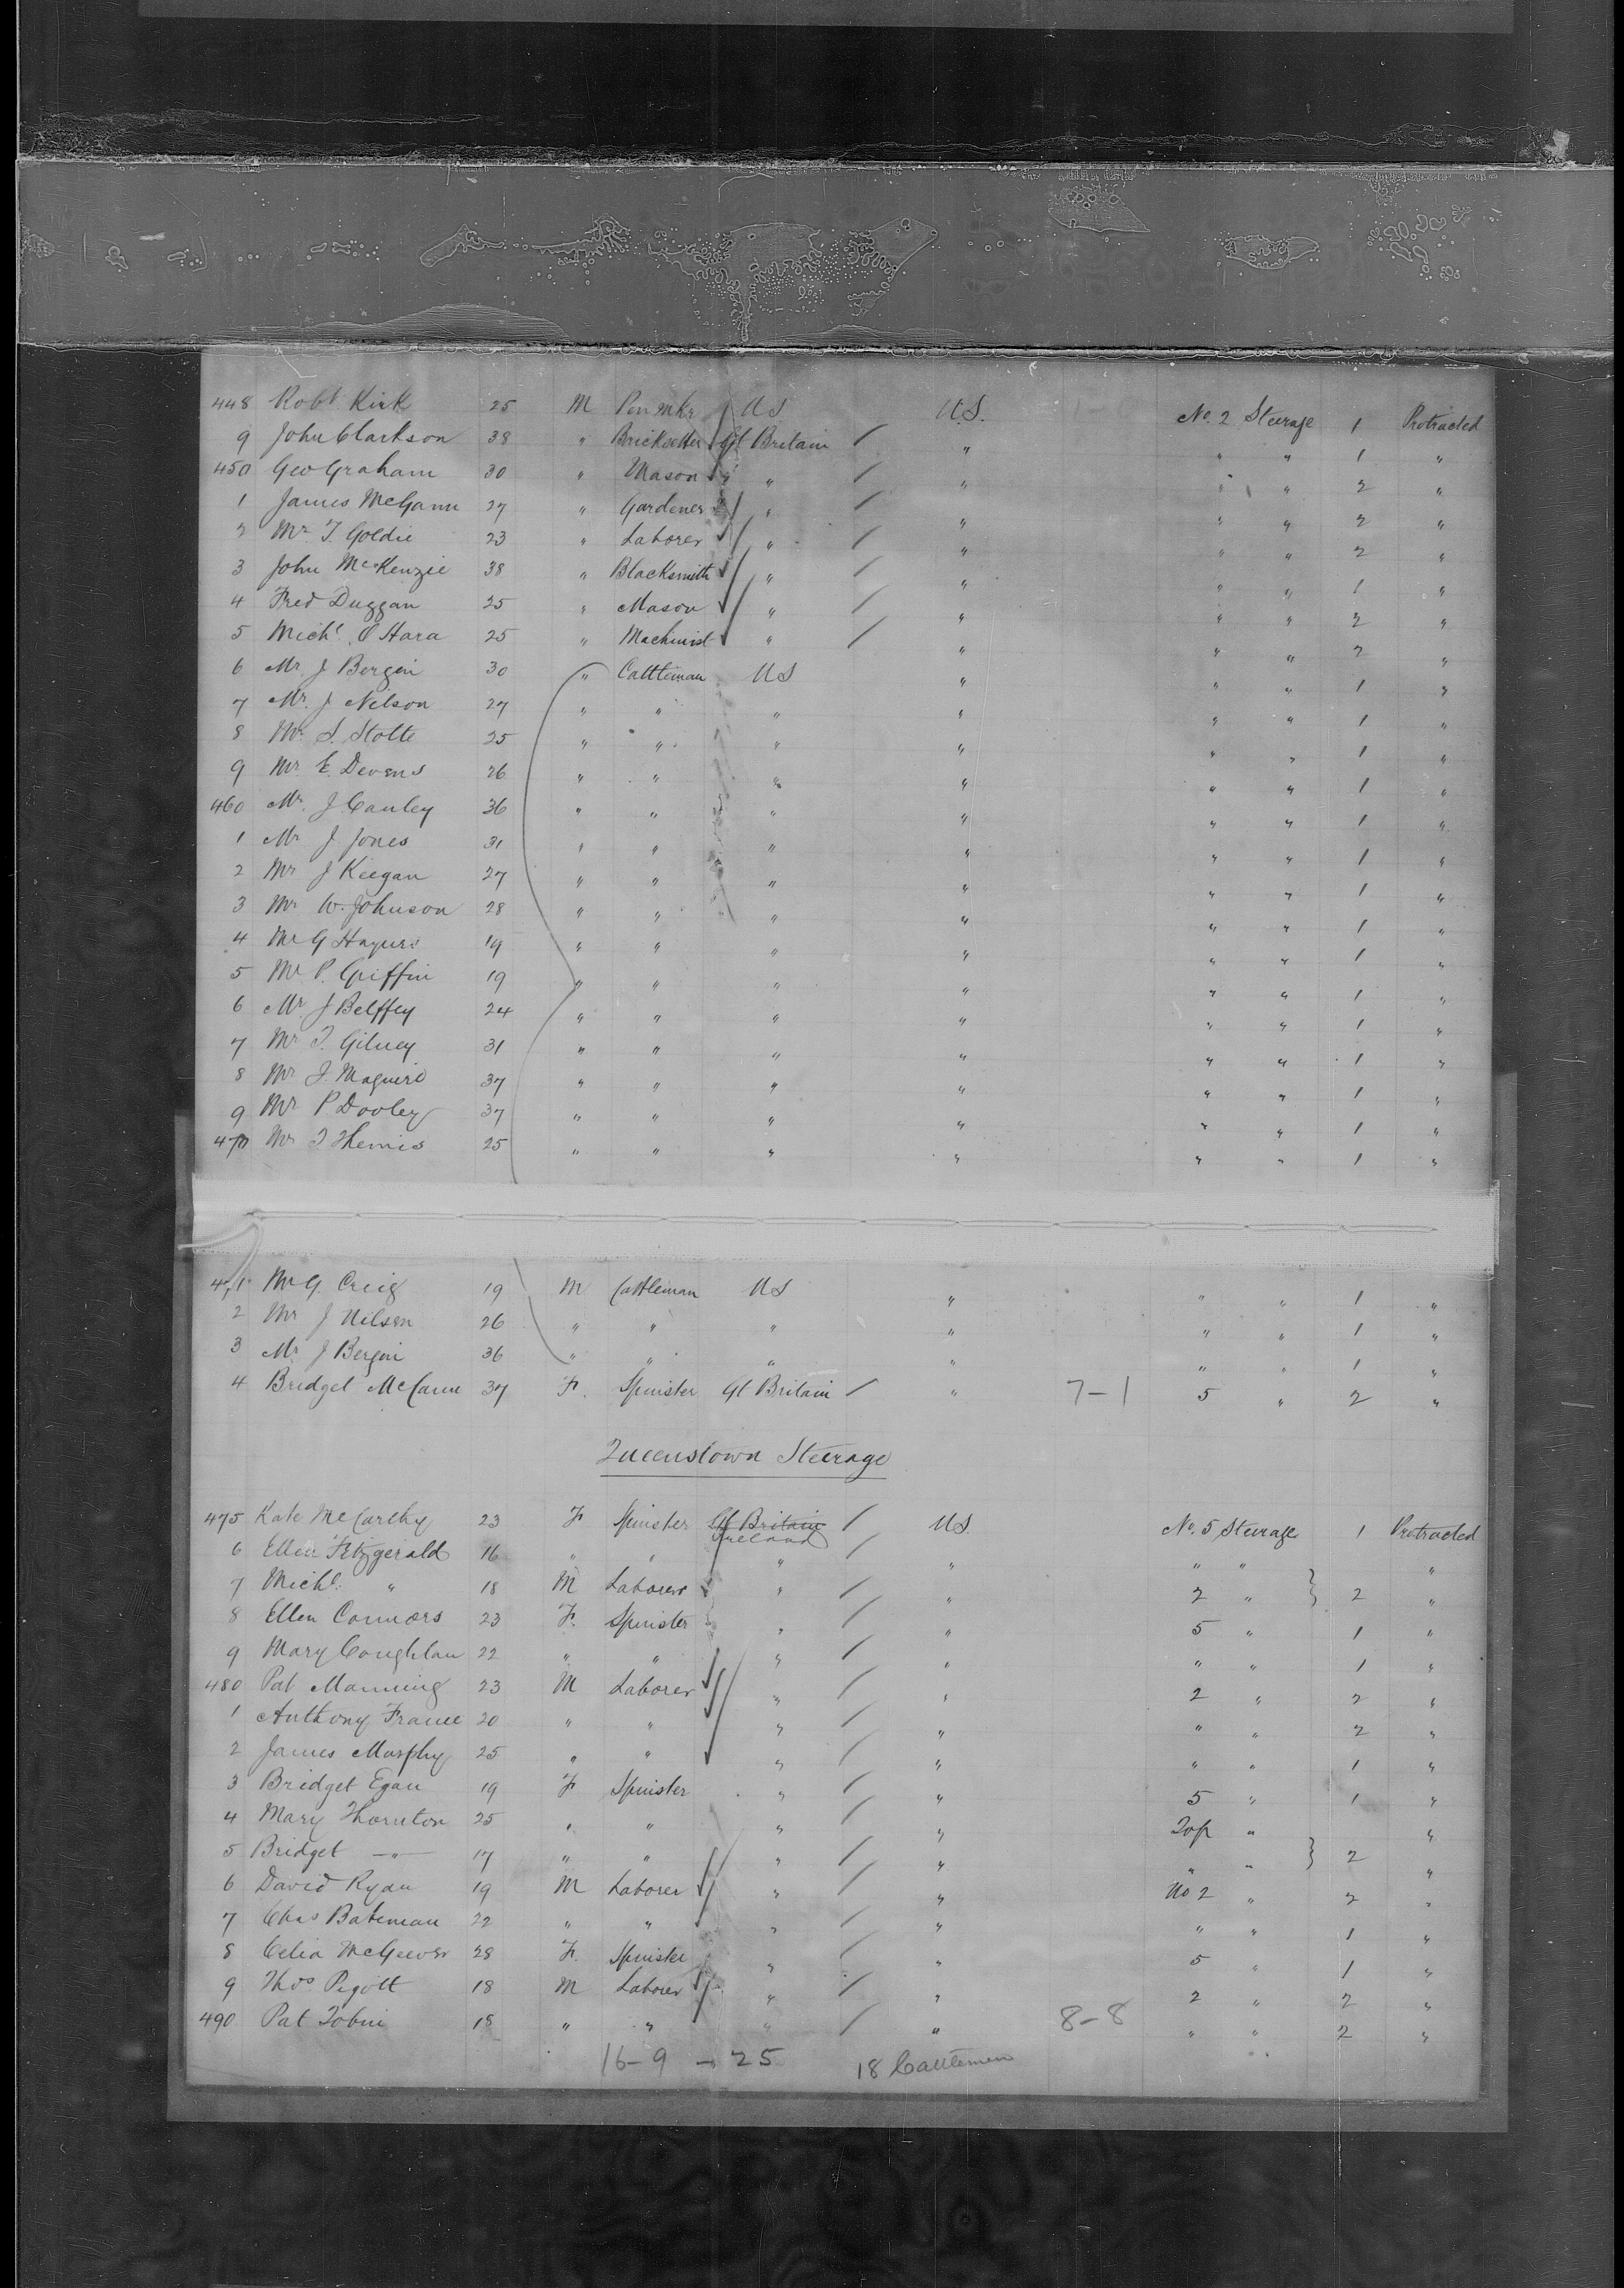 448 Robt. Kirk 25 M Pen Mkr US U.S. No. 2 Steerage 1 Protracted
9 John Clarkson 38 " Bricksetter Gt Britain / " " " 1 "
450 Geo Graham 30 " Mason " / " " " 2 "
1 James McGann 27 " Gardener " / " " " 2 "
2 Mr T. Goldie 23 " Laborer " / " " " 2 "
3 John McKenzie 38 " Blacksmith " / " " " 1 "
4 Fred Duggan 25 " Mason " / " " " 2 "
5 Michl. O'Hara 25 " Machinist " / " " " 2 "
6 Mr. J Bergin 30 " Cattleman US " " " 1 "
7 Mr. J Nelson 27 " " " " " " 1 "
8 Mr. S. Stolte 25 " " " " " " 1 "
9 Mr E. Devens 26 " " " " " " 1 "
460 Mr. J Cauley 36 " " " " " " 1 "
1 Mr J Jones 31 " " " " " " 1 "
2 Mr J Keegan 27 " " " " " " 1 "
3 Mr W. Johnson 28 " " " " " " 1 "
4 Mr G 19 " " " " " " 1 "
5 Mr P. Griffin 19 " " " " " " 1 "
6 Mr. J Belffey 24 " " " " " " 1 "
7 Mr T. Gilney 31 " " " " " " 1 "
8 Mr J. Maguire 37 " " " " " " 1 "
9 Mr P Dooley 37 " " " " " " 1 "
470 Mr T Themis 25 " " " " " " 1 "
471 Mr G. Creig 19 M Cattleman US " " " 1 "
2 Mr J Nilsen 26 " " " " " " 1 "
3 Mr J Bergin 36 " " " " " " 1 "
4 Bridget McCann 37 F. Spinster Gt Britain / " 7-1 5 " 2 "
Queenstown Steerage
475 Kate McCarthy 23 F Spinster Gt Britain / US No. 5 Steerage 1 Protracted
Ireland
6 Ellen Fitzgerald 16 " " " / " " " "
7 Michl. " 18 M Laborer " / " 2 " } 2 "
8 Ellen Connors 23 F. Spinster " / " 5 " 1 "
9 Mary Coughlan 22 " " " / " " " 1 "
480 Pat Manning 23 M Laborer " / " 2 " 2 "
1 Anthony France 20 " " " / " " " 2 "
2 James Murphy 25 " " " / " " " 1 "
3 Bridget Egan 19 F Spinster " / " 5 " 1 "
4 Mary Thornton 25 " " " / " Top " "
5 Bridget —"— 17 " " " / " " " } 2 "
6 David Ryan 19 M Laborer " / " No 2 " 2 "
7 Chas Bateman 22 " " " / " " " 1 "
8 Celia McGeever 28 F. Spinster " / " 5 " 1 "
9 Thos Pigott 18 M Laborer " / " 2 " 2 "
490 Pat Tobin 18 " " " / " 8-8 " " 2 "
16-9 - 25 18 Cattlemen